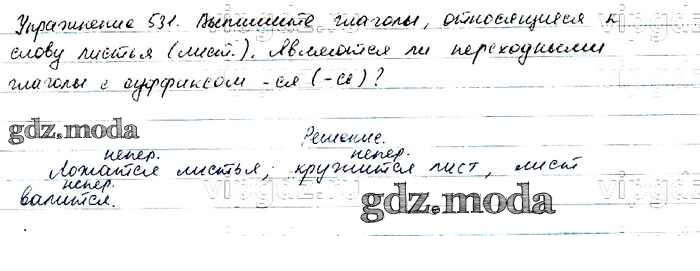 Упражнение 531. Выпишите глаголы, относящиеся к
слову листья (лист.). Являются ли переходными
глаголы с суффиксом -ся (-сь)?
gdz.moda
Решение.
непер. непер.
Ложатся листья, кружится лист, лист
непер.
валится.
gdz.moda